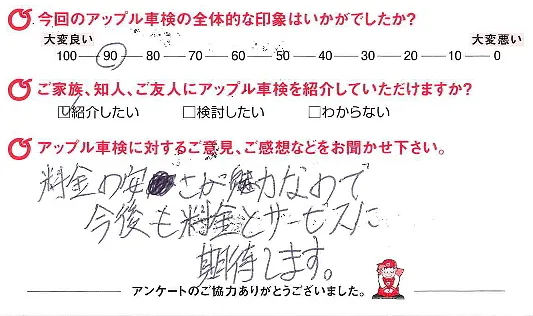 今回のアップル車検の全体的な印象はいかがでしたか?
大変良い 大変悪い
100 90 80 70 60 50 40 30 20 10 0
ご家族、知人、ご友人にアップル車検を紹介していただけますか?
☑紹介したい □検討したい □わからない
アップル車検に対するご意見、ご感想などをお聞かせ下さい。
料金の安さが魅力なので
今後も料金とサービスに
期待します。
アンケートのご協力ありがとうございました。